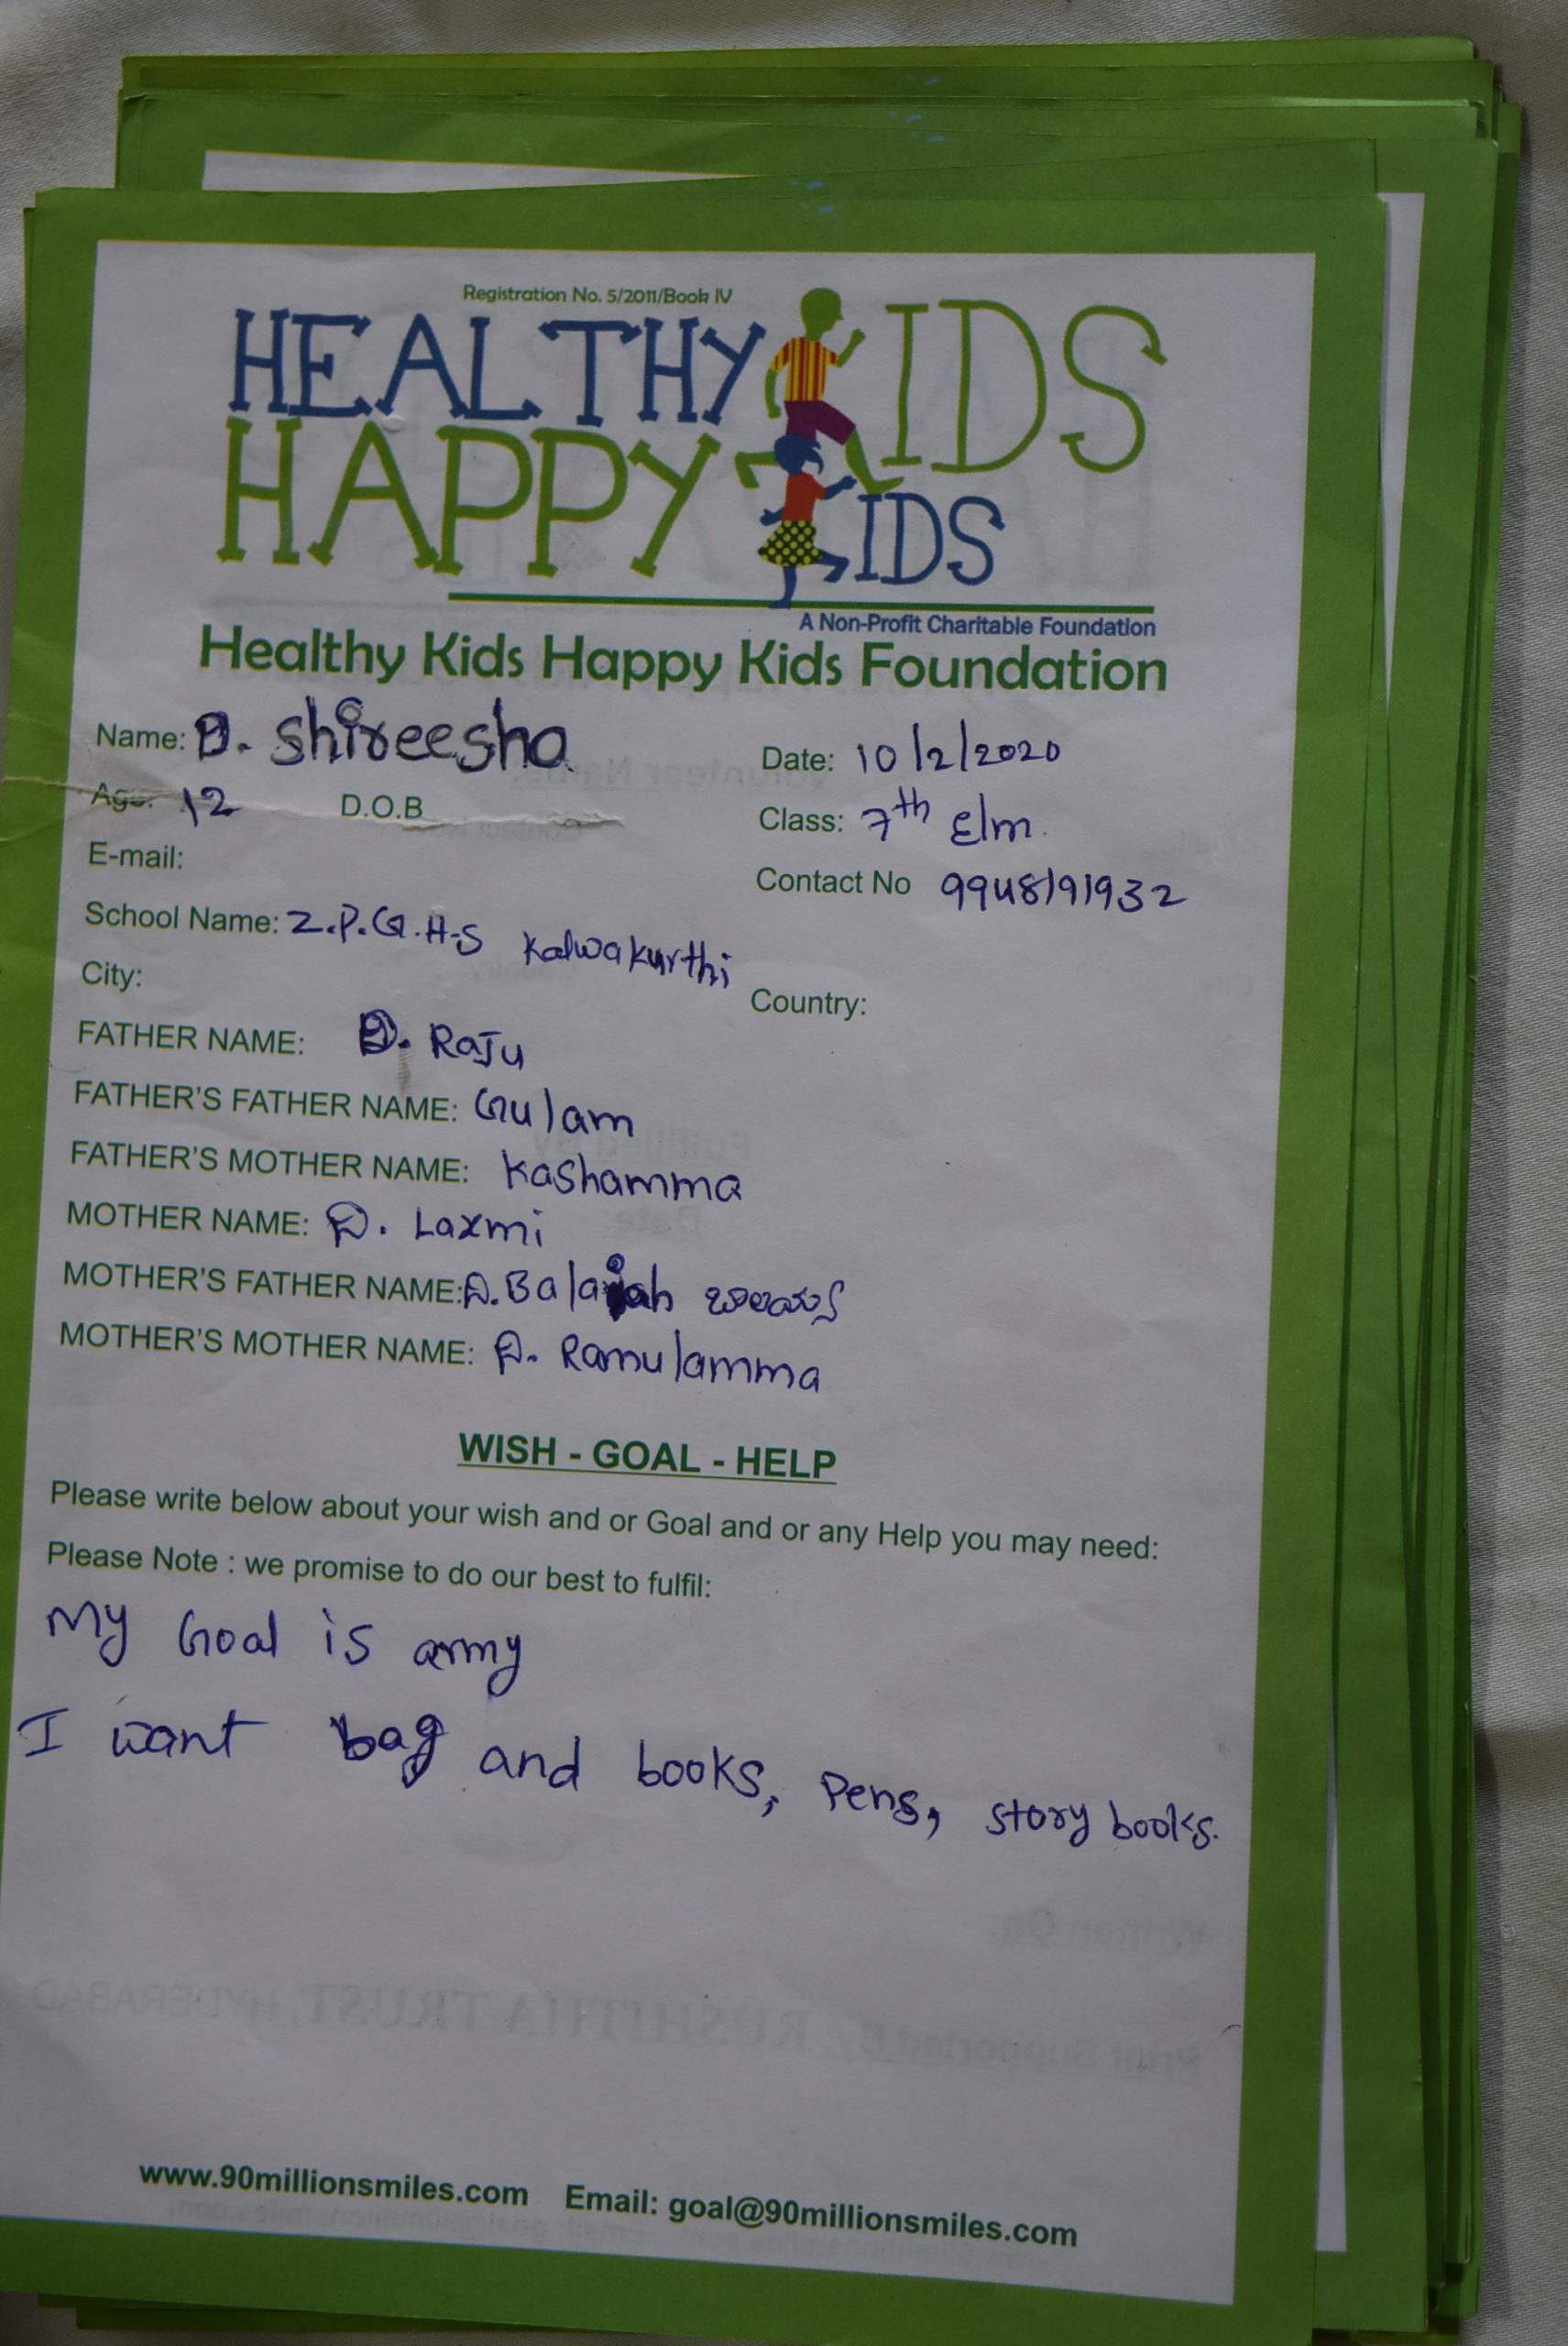 Registration No. 5/2011/Book IV
HEALTHY KIDS
HAPPY KIDS
A Non-Profit Charitable Foundation
Healthy Kids Happy Kids Foundation
Name: D. Shireesha Date: 10/2/2020
Age: 12 D.O.B Class: 7th E/m
E-mail: Contact No 9948191932
School Name: Z.P.G.H.S Kalwakurthi
City: Country:
FATHER NAME: D. Raju
FATHER'S FATHER NAME: Gulam
FATHER'S MOTHER NAME: Kashamma
MOTHER NAME: D. Laxmi
MOTHER'S FATHER NAME: D. Balaiah బాలయ్య
MOTHER'S MOTHER NAME: D. Ramulamma
WISH - GOAL - HELP
Please write below about your wish and or Goal and or any Help you may need:
Please Note : we promise to do our best to fulfil:
My Goal is army
I want bag and books, Pens, story books.
www.90millionsmiles.com Email: goal@90millionsmiles.com